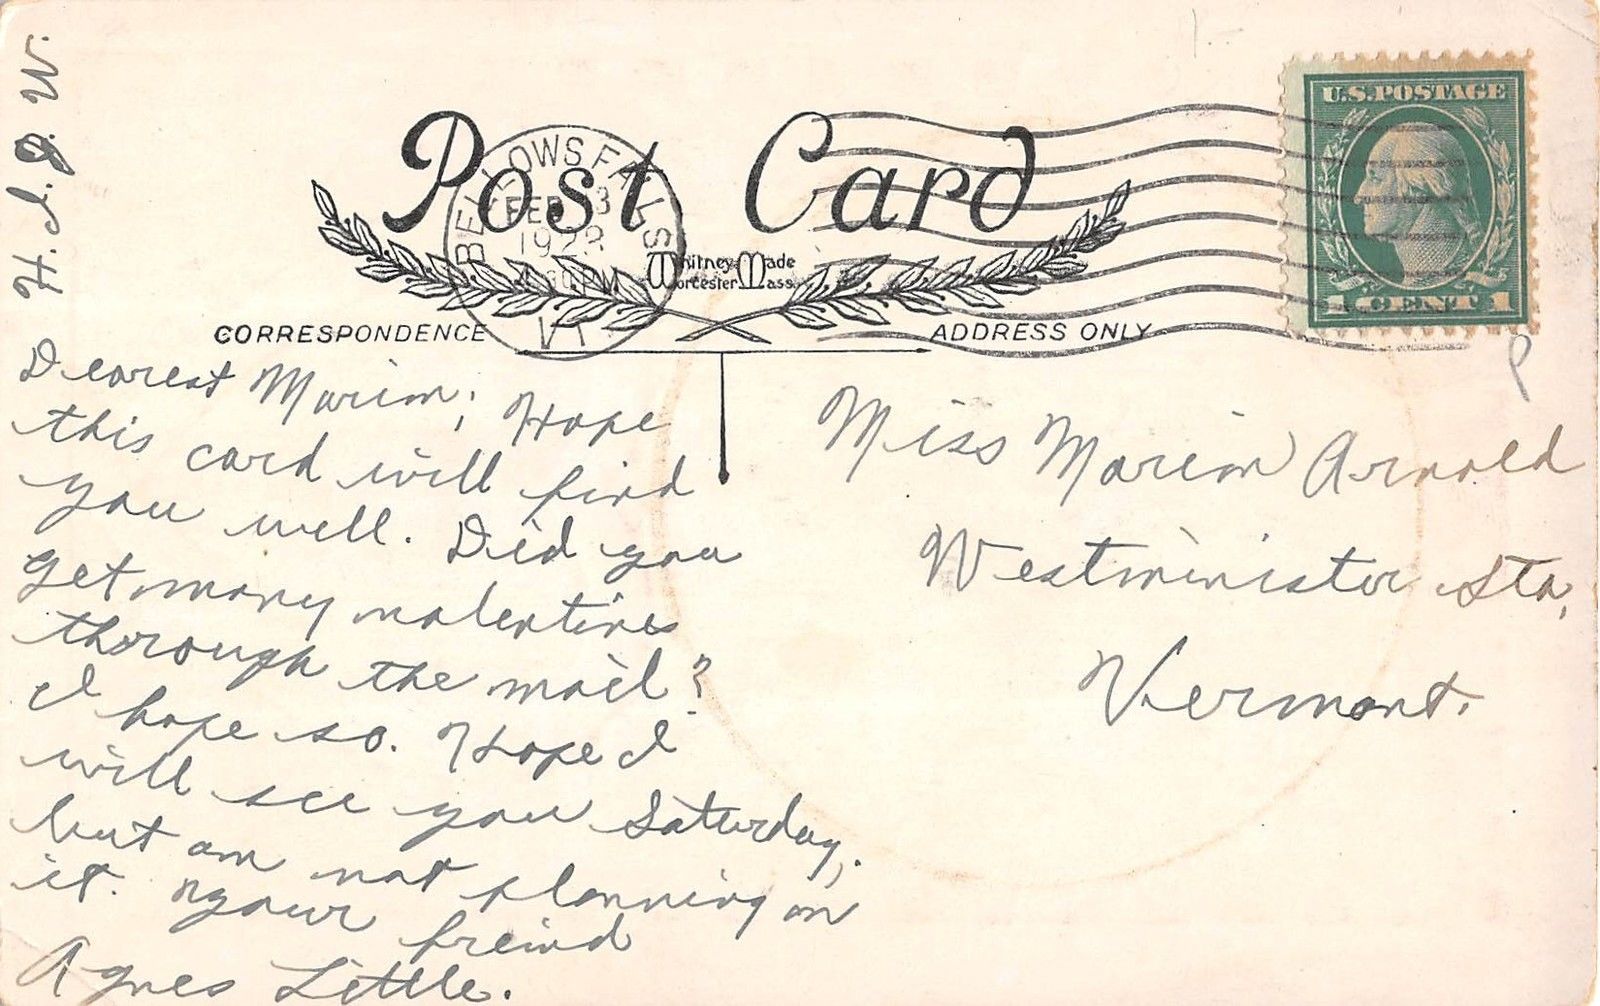 H. I. J. W.
Post Card
BELLOWS FALLS
FEB 3
192
30 PM
VT.
Whitney Made
Worcester Mass.
U.S. POSTAGE
1 CENT 1
CORRESPONDENCE
ADDRESS ONLY
Dearest Marion; Hope
this card will find
you well. Did you
get many valentines
through the mail?
I hope so. Hope I
will see you Saturday,
but am not planning on
it. Your freind
Agnes Little.
Miss Marion Arnold
Westminister Sta,
Vermont.